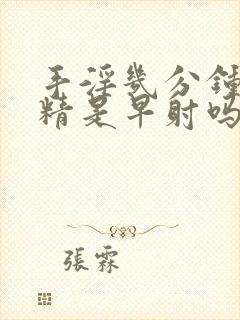 手淫几分鍾
精是早射吗
張霖